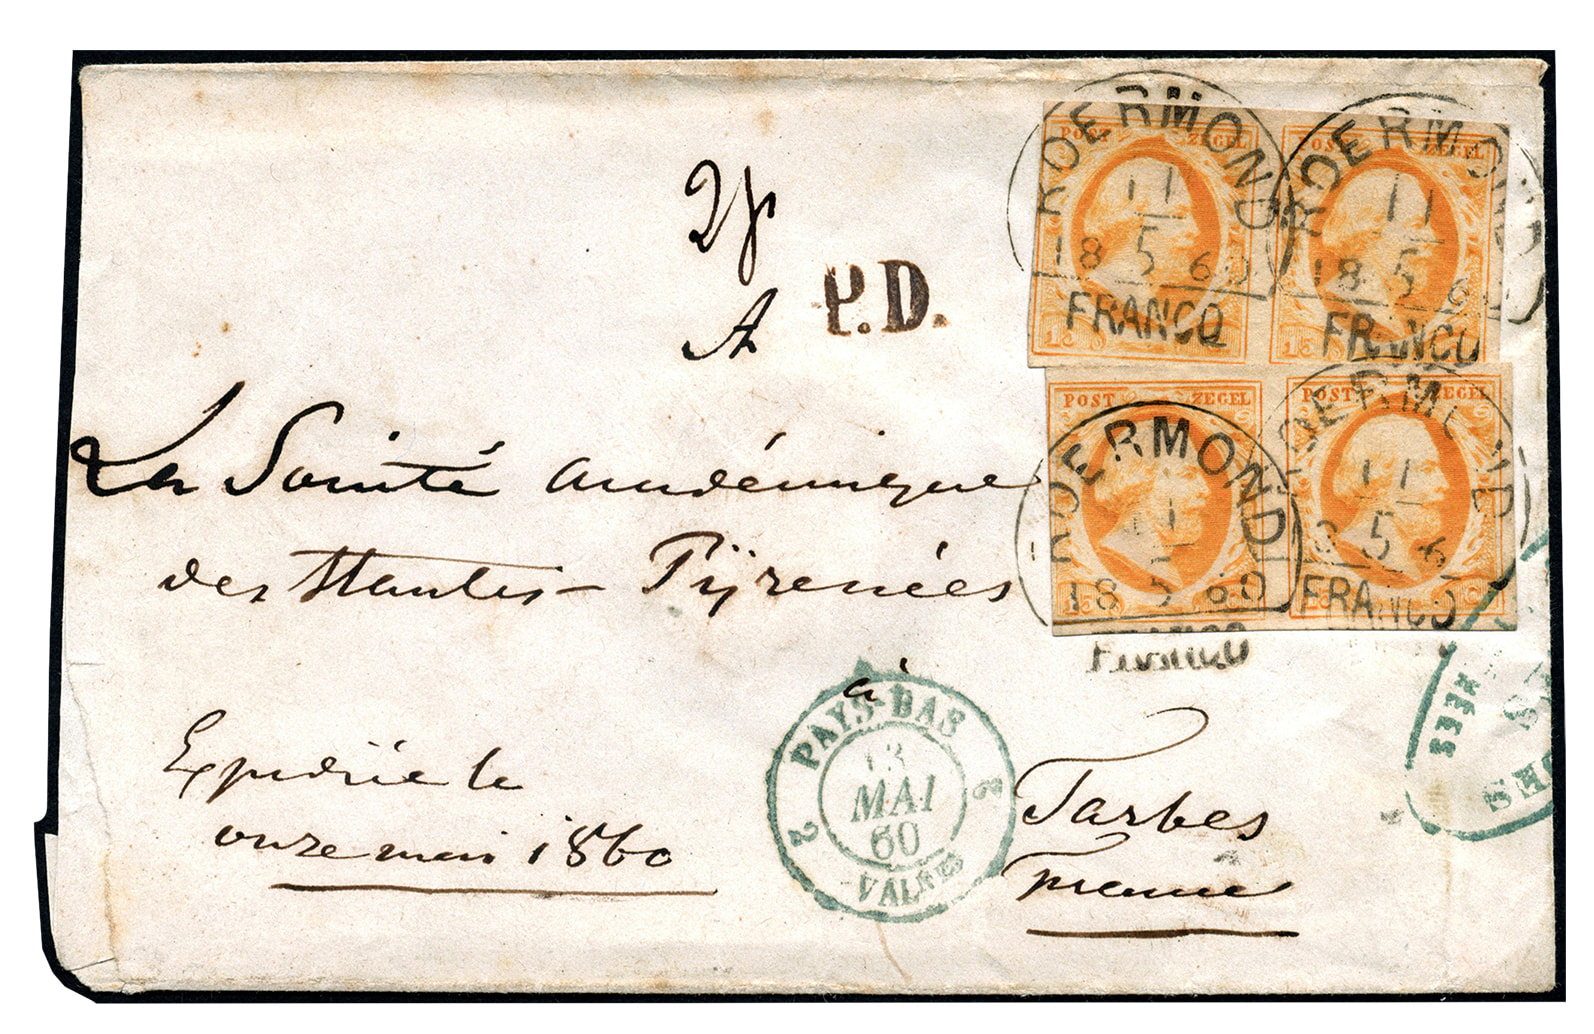 POST ZEGEL POST ZEGEL
ROERMOND ROERMOND
11 11
18 5 60 18 5 6
FRANCO FRANCO
15 15
POST ZEGEL POST ZEGEL
ROERMOND
11 11
18 5 60 5 6
FRANCO FRANCO
15 C
2
A
P.D.
La Société académique
des Hautes-Pÿrenées
à
Tarbes
France
Expédiée le
onze mai 1860
PAYS-BAS
2 13 2
MAI
60
VALNES